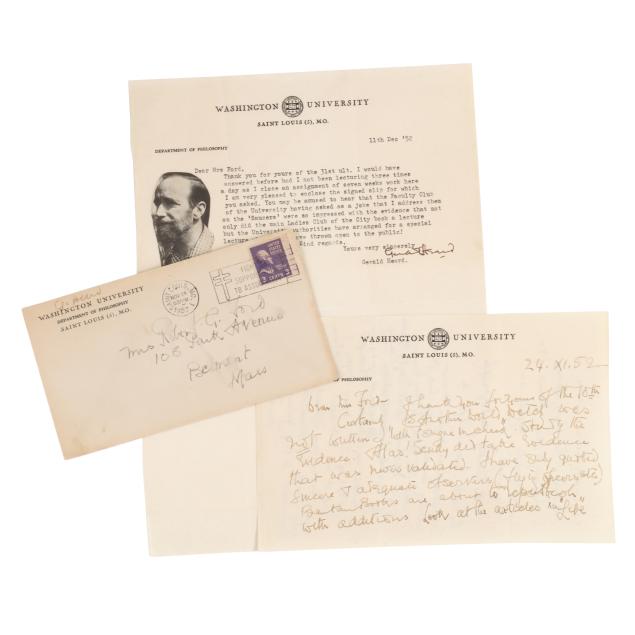 WASHINGTON UNIVERSITY
SAINT LOUIS (5), MO.
DEPARTMENT OF PHILOSOPHY
11th Dec '52
Dear Mrs Ford,
Thank you for yours of the 31st ult. I would have
answered before had I not been lecturing three times
a day as I close an assignment of seven weeks work here
I am very pleased to enclose the signed slip for which
you asked. You may be amused to hear that the Faculty Club
of the University having asked as a joke that I address them
on the 'Saucers' were so impressed with the evidence that not
only did the main Ladies Club of the City book a lecture
but the University authorities have arranged for a special
lecture thrown open to the public!
kind regards,
Yours very sincerely
Gerald Heard
Gerald Heard.
G. Heard
WASHINGTON UNIVERSITY
DEPARTMENT OF PHILOSOPHY
SAINT LOUIS (5), MO.
NOV 24
1952
UNITED STATES POSTAGE
3 CENTS 3
Mrs Robt. G. Ford
106 Park Avenue
Belmont
Mass
WASHINGTON UNIVERSITY
SAINT LOUIS (5), MO.
OF PHILOSOPHY
24. XI. 52
Dear Mrs Ford Thank you for yours of the 16th
Certainly Is Another World was
not written "with tongue in cheek" Study the
evidence. Alas! Scully did take evidence
that was never validated. I have only quoted
sincere & adequate observers (flying
Bantam Books are about to republish
with additions Look at the articles in "Life"